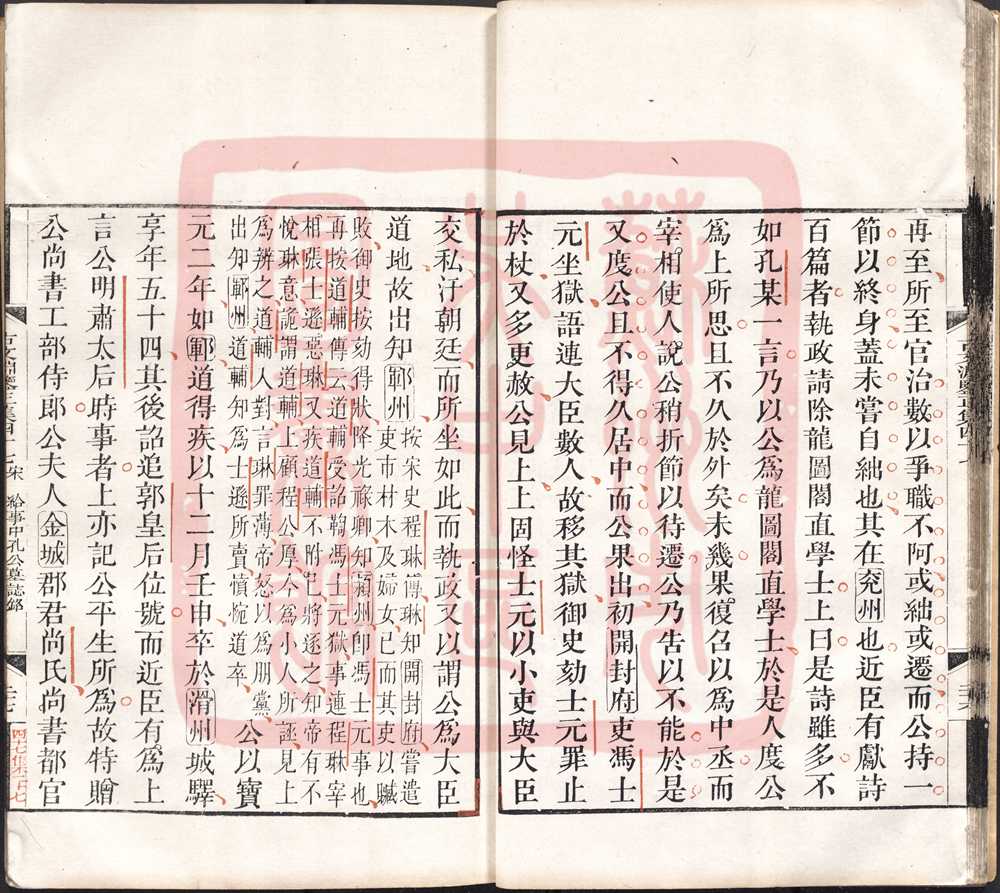 再至所至官治數以爭職不阿或絀或遷而公持一
節以終身蓋未嘗自絀也其在兖州也近臣有獻詩
百篇者執政請除龍圖閣直學士上曰是詩雖多不
如孔某一言乃以公爲龍圖閣直學士於是人度公
爲上所思且不久於外矣未幾果復召以爲中丞而
宰相使人說公稍折節以待遷公乃告以不能於是
又度公且不得久居中而公果出初開封府吏馮士
元坐獄語連大臣數人故移其獄御史劾士元罪止
於杖又多更赦公見上上固怪士元以小吏與大臣
交私汙朝廷而所坐如此而執政又以謂公爲大臣
道地故出知鄆州
按宋史程琳傳琳知開封府嘗遣
吏市材木及婦女已而其吏以贓
敗御史按劾得狀降光祿卿知潁州卽馮士元事也
再按道輔傳云道輔受詔鞫馮士元獄事連程琳宰
相張士遜惡琳又疾道輔不附己將逐之知帝有不
悅琳意詭謂道輔上顧程公厚今爲小人所誣見上
爲辨之道輔人對言琳罪薄帝怒以爲朋黨
出知鄆州道輔知爲士遜所賣憤惋道卒
公以寶
元二年如鄆道得疾以十二月壬申卒於滑州城驛
享年五十四其後詔追郭皇后位號而近臣有爲上
言公明肅太后時事者上亦記公平生所爲故特贈
公尚書工部侍郎公夫人金城郡君尚氏尚書都官
宋 給事中孔公墓誌銘